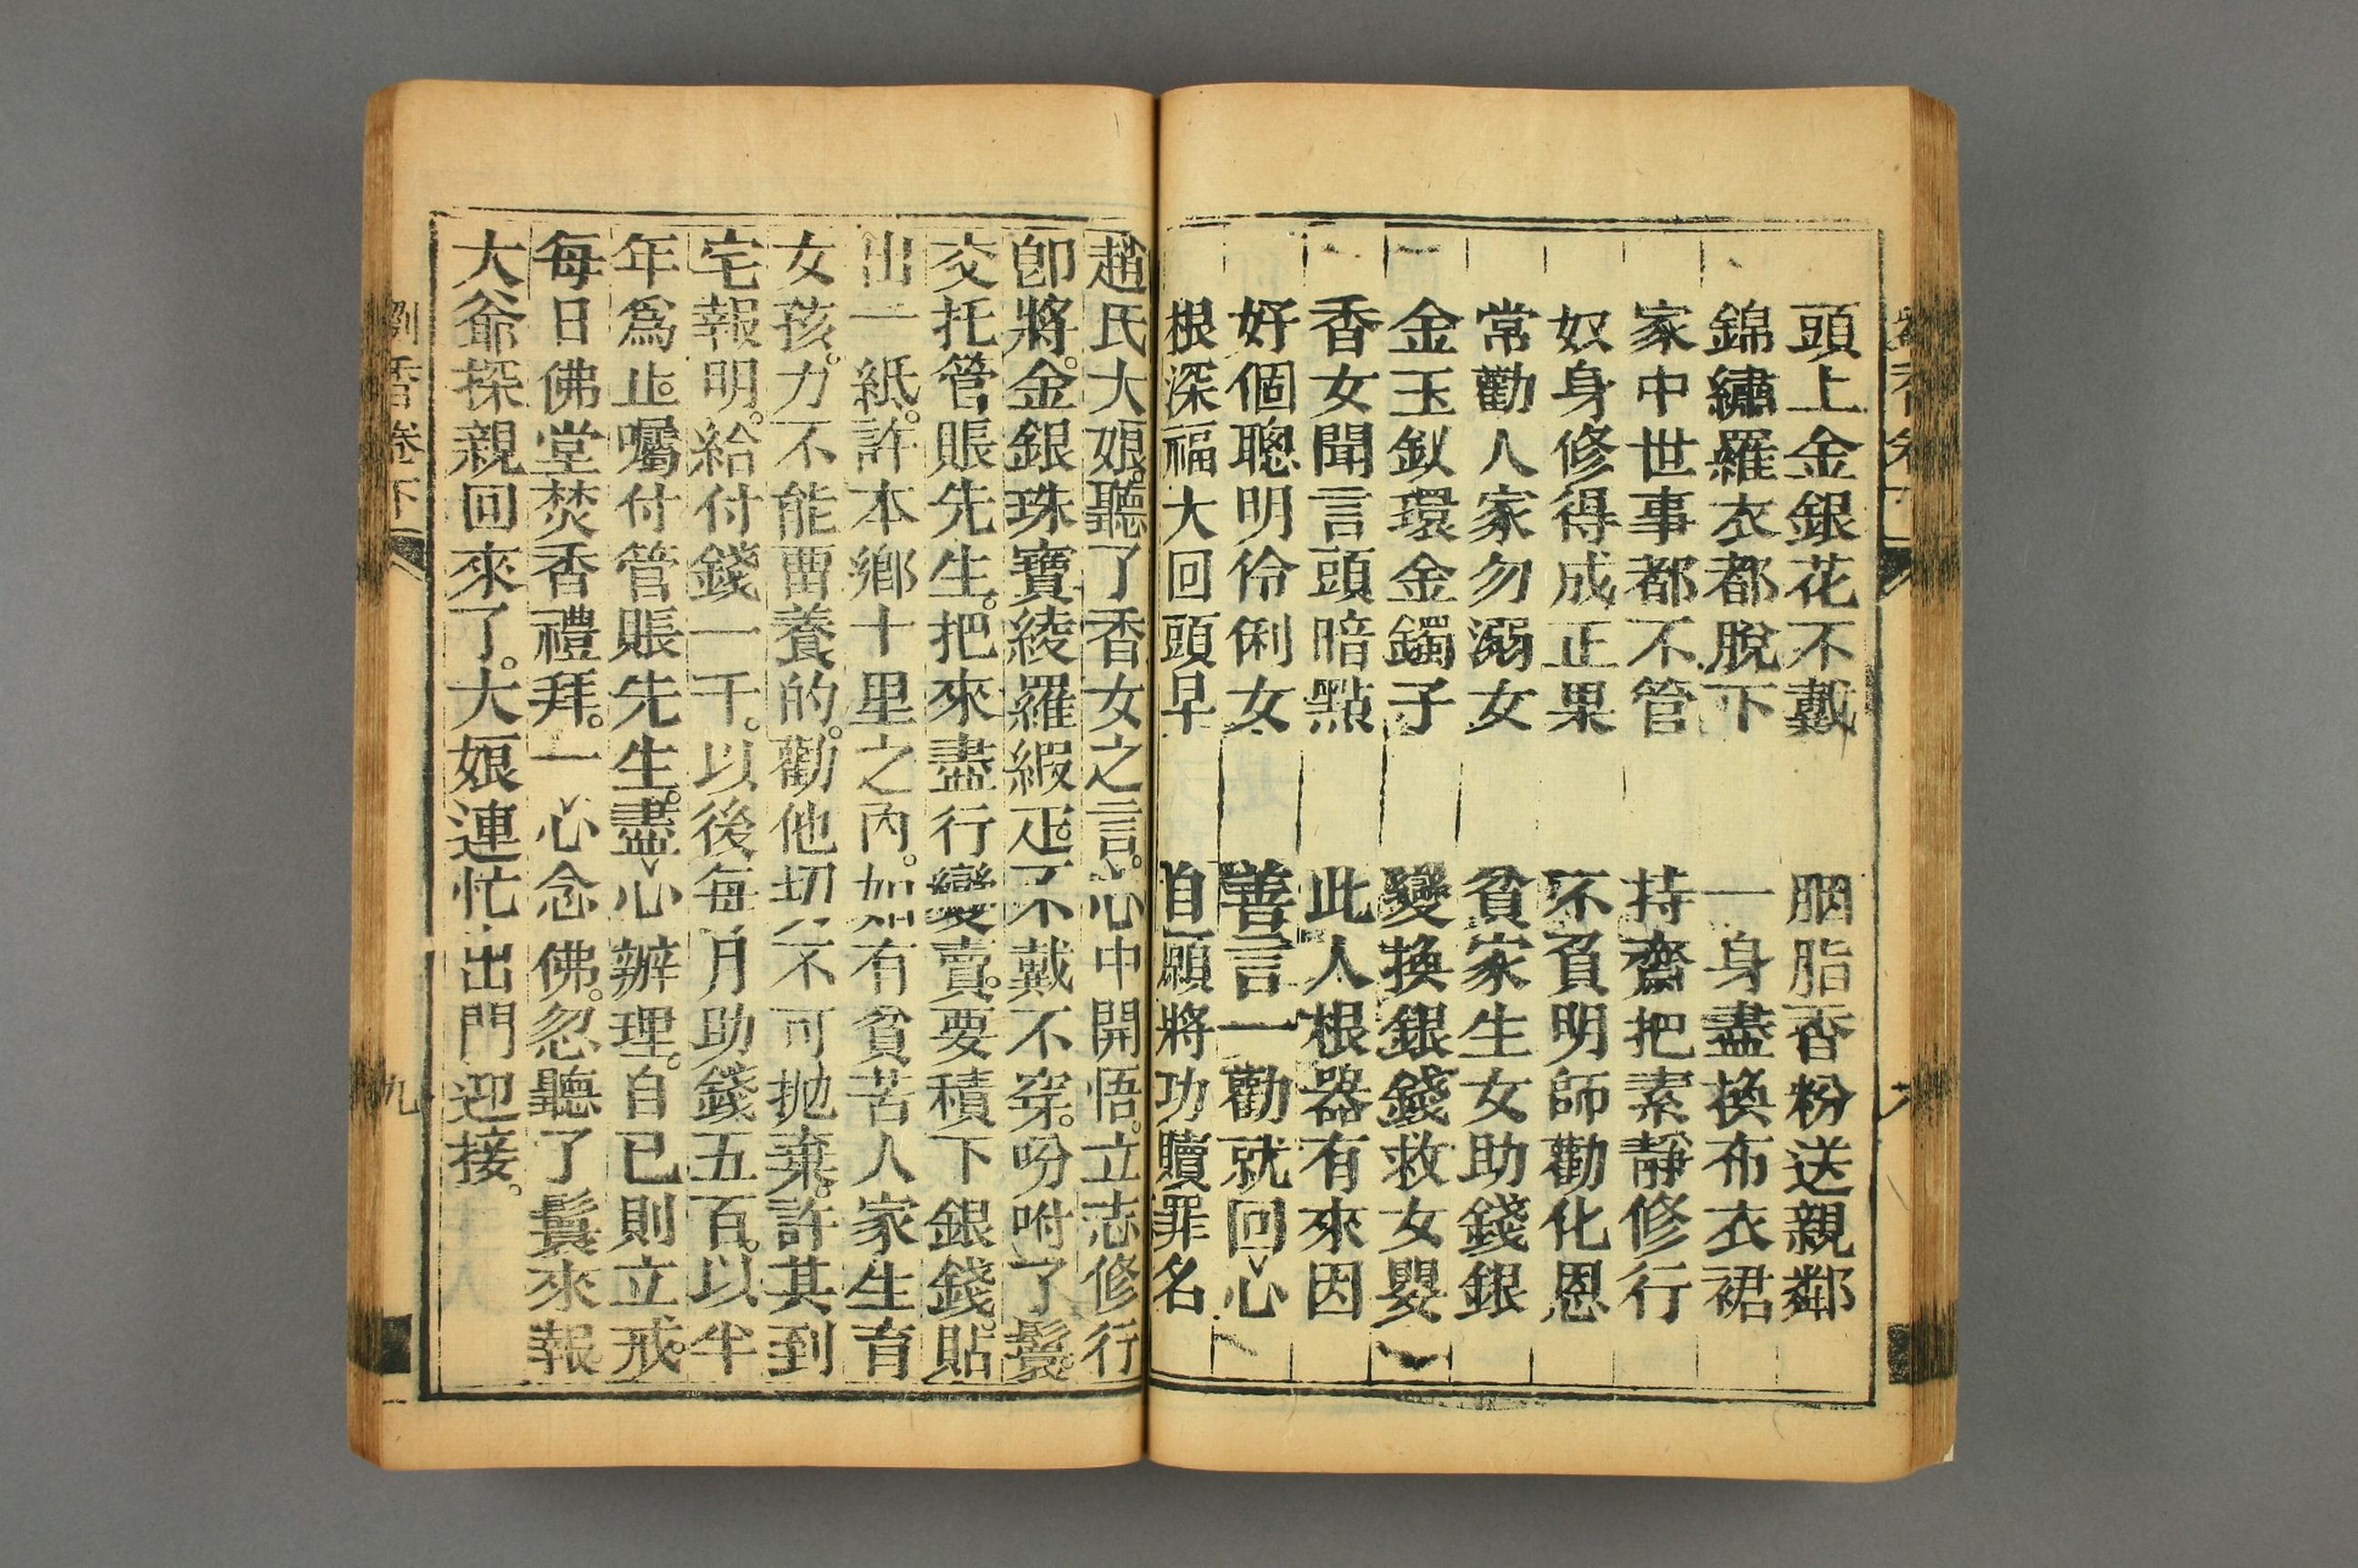 頭上金銀花不戴 胭脂香粉送親鄰
錦繡羅衣都脫下 一身盡換布衣裙
家中世事都不管 持齋把素靜修行
奴身修得成正果 不負明師勸化恩
常勸人家勿溺女 貧家生女助錢銀
金玉釵環金鐲子 變換銀錢救女嬰
香女聞言頭暗點 此人根器有來因
好個聰明伶俐女 善言一勸就回心
根深福大回頭早 自願將功贖罪名
趙氏大娘。聽了香女之言。心中開悟。立志修行
卽將。金銀珠寶綾羅緞疋。不戴不穿。吩咐了鬟。
交托管賬先生。把來盡行變賣。要積下銀錢。貼
出一紙。許本鄉十里之內。如有貧苦人家生育
女孩。力不能畱養的。勸他切不可拋棄。許其到
宅報明。給付錢一千。以後每月助錢五百。以半
年爲止。囑付管賬先生。盡心辦理。自已則立戒。
每日佛堂焚香禮拜。一心念佛。忽聽了鬟來報。
大爺探親回來了。大娘連忙出門迎接。
劉香卷下
九